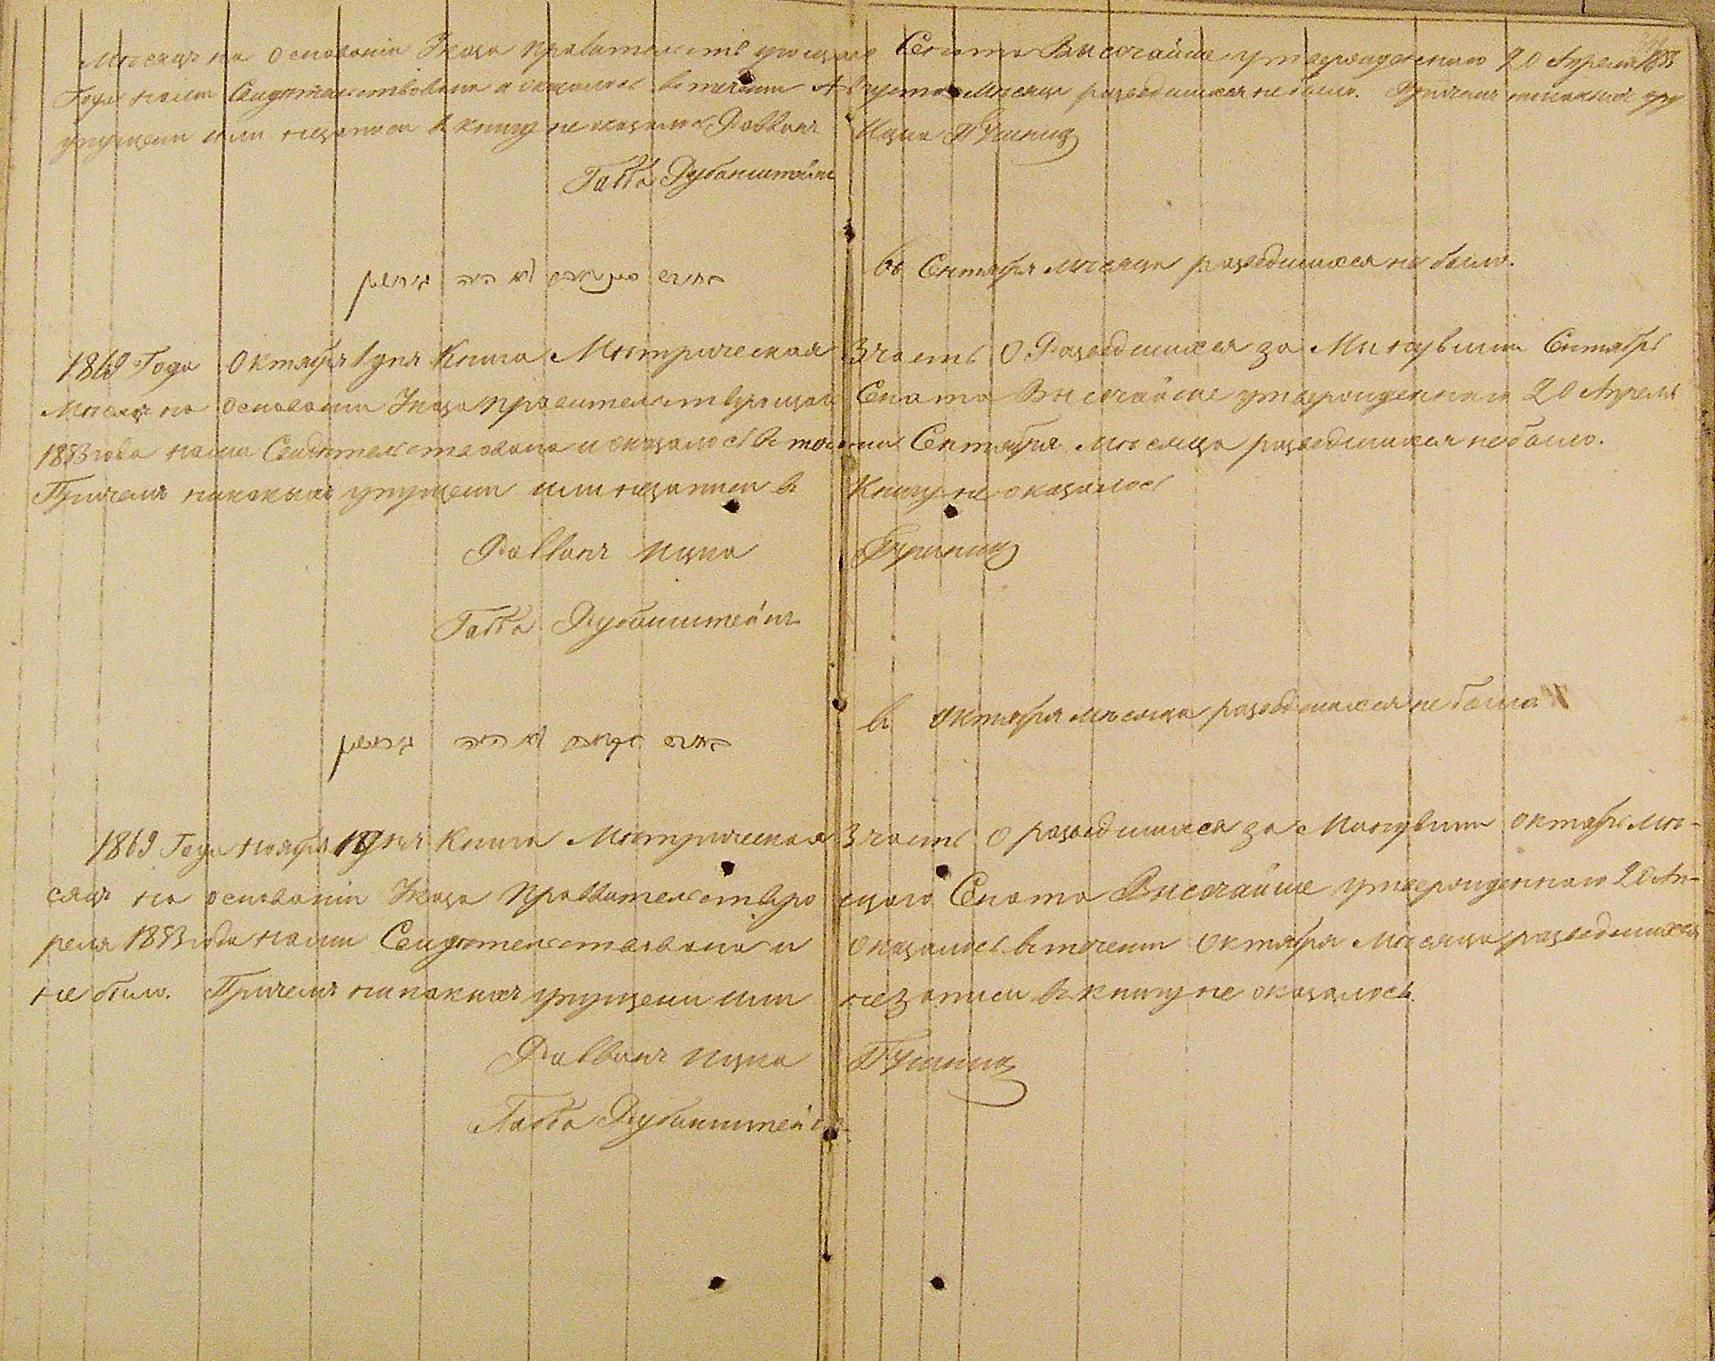 Мѣсяцъ на основаніи Указа правительствующаго Сената Высочайше утвержденнаго 20 Апреля 1853
Года нами Свидѣтельствована и оказалось в течении Августа Мѣсяца разведшихся небыло. Причем никаких
упущени или незаписи в книгу не оказалось Раввин Ицка
Габба Рубинштейн
בחודש סענטיאבר לא היה גירושין
въ Сентября мѣсяца разведшихся не было.
1869 Года Октября 1 дня Книга Метрическая 3 часть О Разведшихся за Минувший Сентябрь
Мѣсяцъ на основании Указа правительствующаго Сената Высочайше утвержденнаго 20 Апреля
1853 года нами Свидѣтельствована и оказалось в течении Сентября мѣсяца разведшихся небыло.
Причемъ никакихъ упущени или незаписи в Книгу не оказалось
Раввинъ Ицка
Габба Рубинштейнъ
в октября мѣсяца разведшихся не было
בחודש אקטיאבר לא היה גירושין
1869 Года ноября 1 дня Книга Метрическая 3 часть О разведшихся за Минувший октябрь мѣ-
сяцъ на основаніи Указа Правительствую щаго Сената Высочайше утвержденнаго 20 Ап-
реля 1853 года нами Свидѣтельствована и оказалось в течении Октября Мѣсяца разведшихся
не было. Причемъ никакихъ упущени или незаписи в книгу не оказалось.
Раввинъ Ицка
Габба Рубинштейнъ